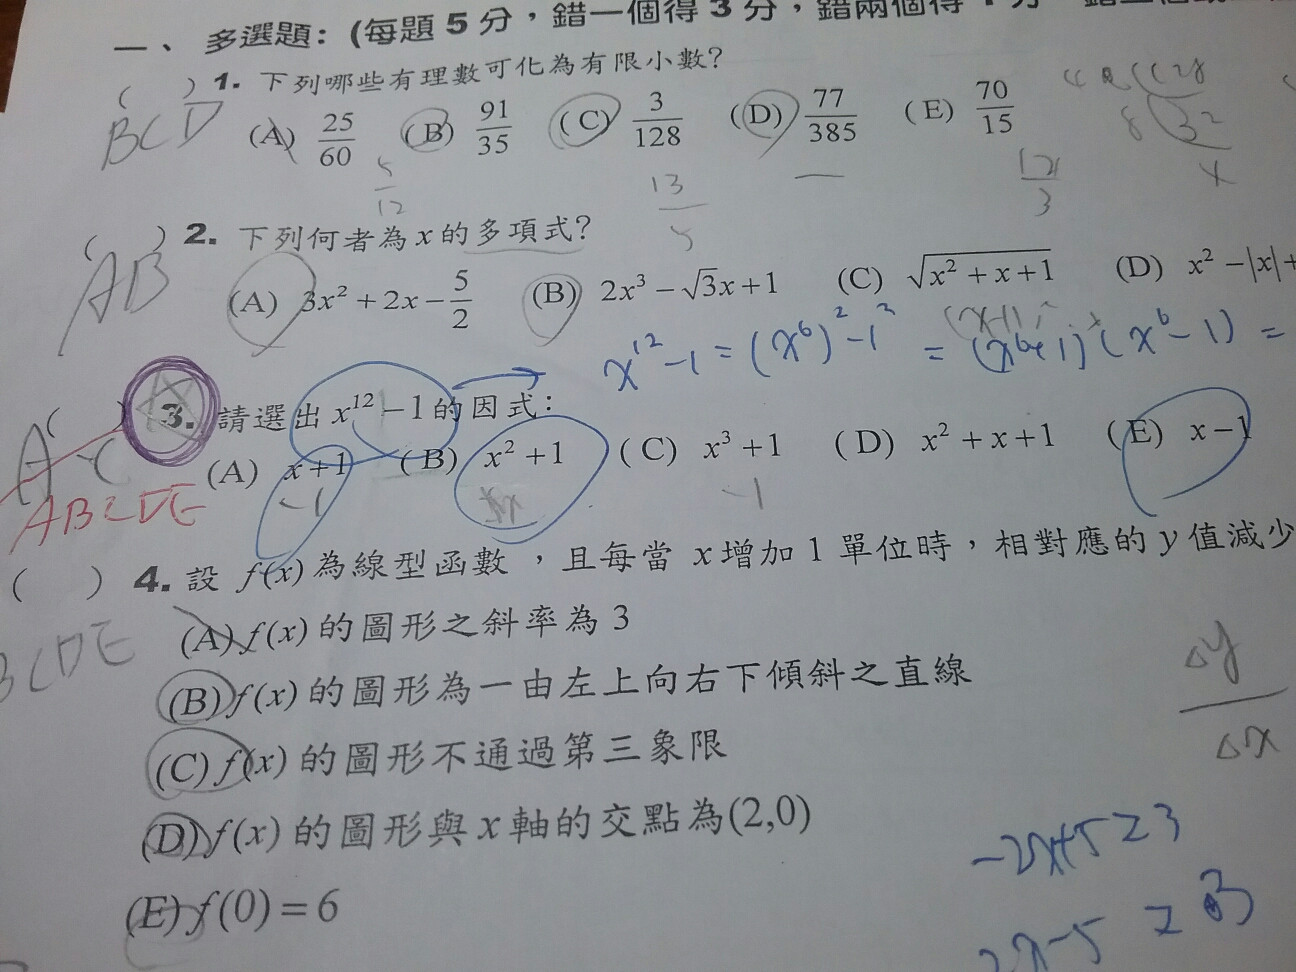 一、多選題：(每題5分，錯一個得3分，錯兩個得
( ) 1. 下列哪些有理數可化為有限小數?
BCD
(A) 25/60 (B) 91/35 (C) 3/128 (D) 77/385 (E) 70/15
5/12
13/5
( ) 2. 下列何者為x的多項式?
AB
(A) 3x² + 2x − 5/2 (B) 2x³ − √3x + 1 (C) √(x² + x + 1) (D) x² − |x| +
x¹² − 1 = (x⁶)² − 1² = (x⁶+1)(x⁶ − 1) =
( ) 3. 請選出 x¹² − 1 的因式：
(A) x + 1 (B) x² + 1 (C) x³ + 1 (D) x² + x + 1 (E) x − 1
−1
−1
ABCDE
( ) 4. 設 f(x) 為線型函數，且每當 x 增加 1 單位時，相對應的 y 值減少
BCDE
(A) f(x) 的圖形之斜率為 3
(B) f(x) 的圖形為一由左上向右下傾斜之直線
(C) f(x) 的圖形不通過第三象限
(D) f(x) 的圖形與 x 軸的交點為(2,0)
(E) f(0) = 6
Δy/Δx
−2x+5≥3